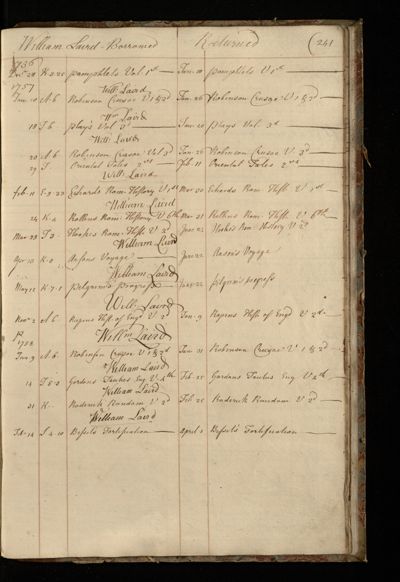 William Laird Borrowed Returned (241
1756
Dec. 20 K 2 25 pamphlets Vol. 1st — Jan. 10 pamphlets V 1st
1757 Will: Laird
Jan. 10 A 6 Robinson Crusoe V 1 & 2d Jan. 20 Robinson Crusoe V 1 & 2d
Wm Laird
18 I 6 plays Vol. 3d Jan. 20 plays Vol. 3d
Will: Laird
20 A 6 Robinson Crusoe Vol 3d Jan. 26 Robinson Crusoe V 3d
29 I Oriental Tales 2nd Feb. 11 Oriental Tales 2nd
Will: Laird
Feb. 11 Echards Rom: History V 1st Mar 20 Echards Rom: Hist. V 1st
William Laird
24 K Rollins Rom: History V 6th Mar 21 Rollins Rom: Hist. V 6th
Mar 22 I 3 Hooks Rom: Hist. V 2d June 22 Hooks Rom: History V 2d
William Laird
Apr 10 K Ansons Voyage June 22 Ansons Voyage
William Laird
May 12 K 7 1 pilgrim's progress June 22 pilgrim's progress
Will: Laird
Nov. 2 A 6 Rapins Hist. of Engd V 2d Jan. 9 Rapins Hist. of Engd V 2d
Willm Laird
1758
Jan. 9 A 6 Robinson Crusoe V 1 & 2d Jan 21 Robinson Crusoe V 1 & 2d
William Laird
14 I 5 2 Gordons Tacitus Eng V 4th Feb 25 Gordons Tacitus Eng V 4th
William Laird
21 K Roderick Random V 2d Feb 25 Roderick Random V 2d
William Laird
Feb. 14 I 4 10 Fortification April 2 Fortification